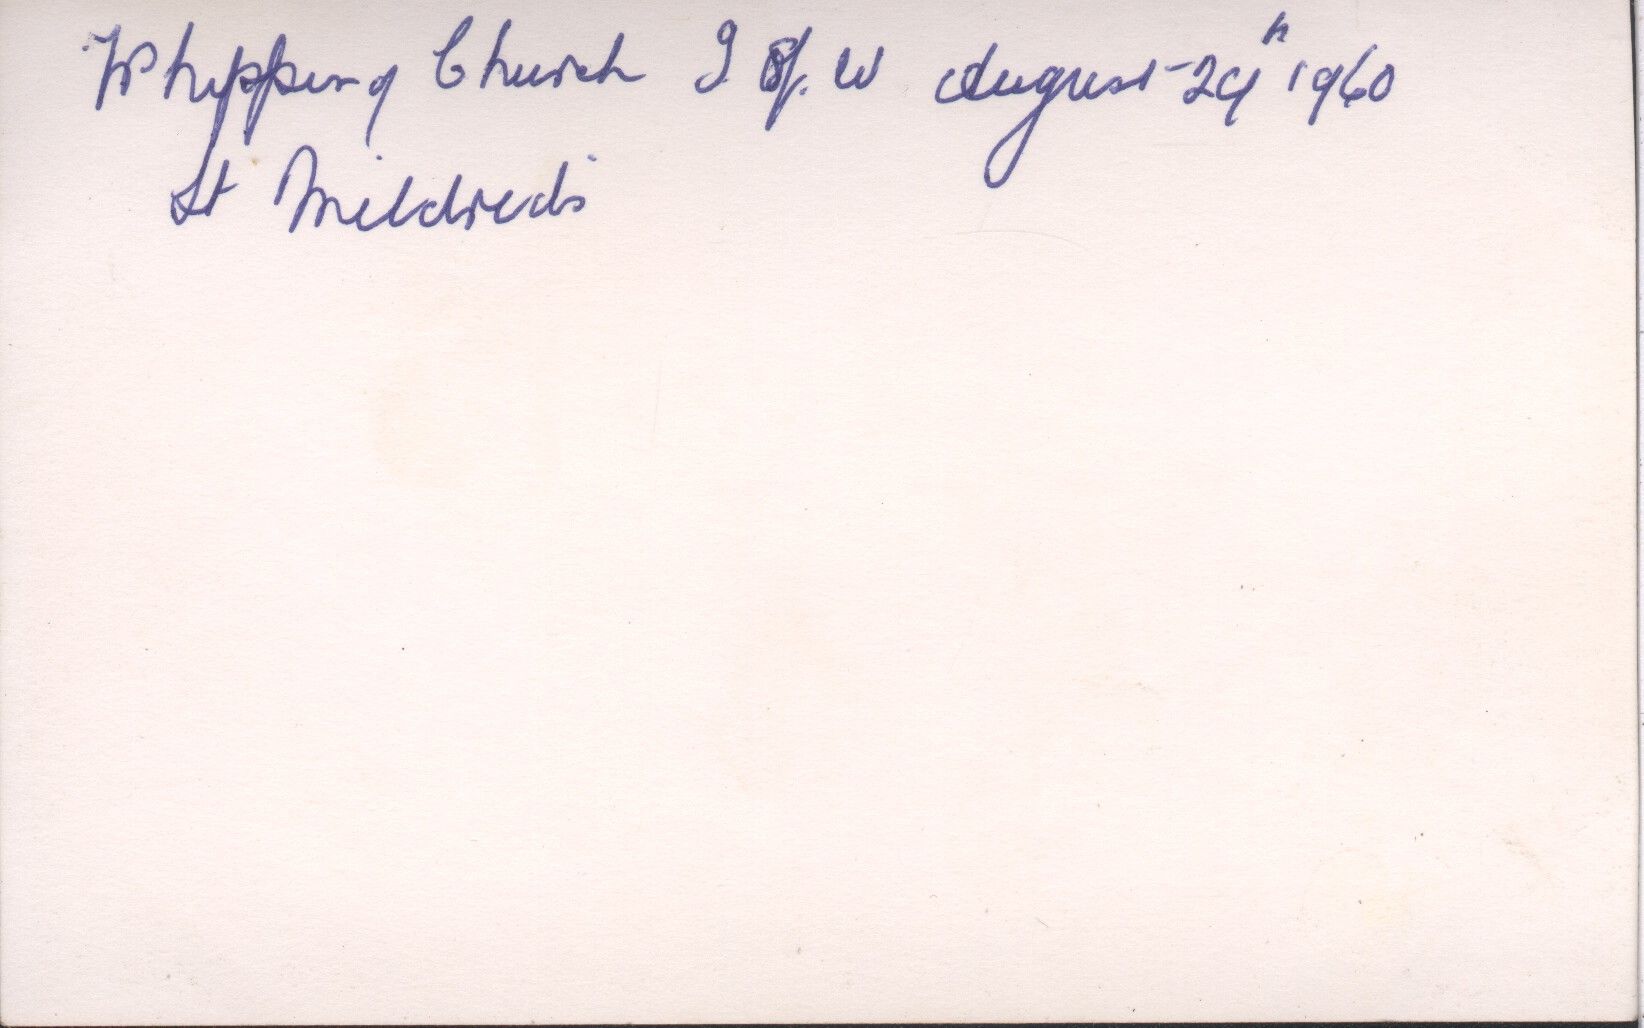 Whipping Church I of. W August 29th 1960
St Mildreds